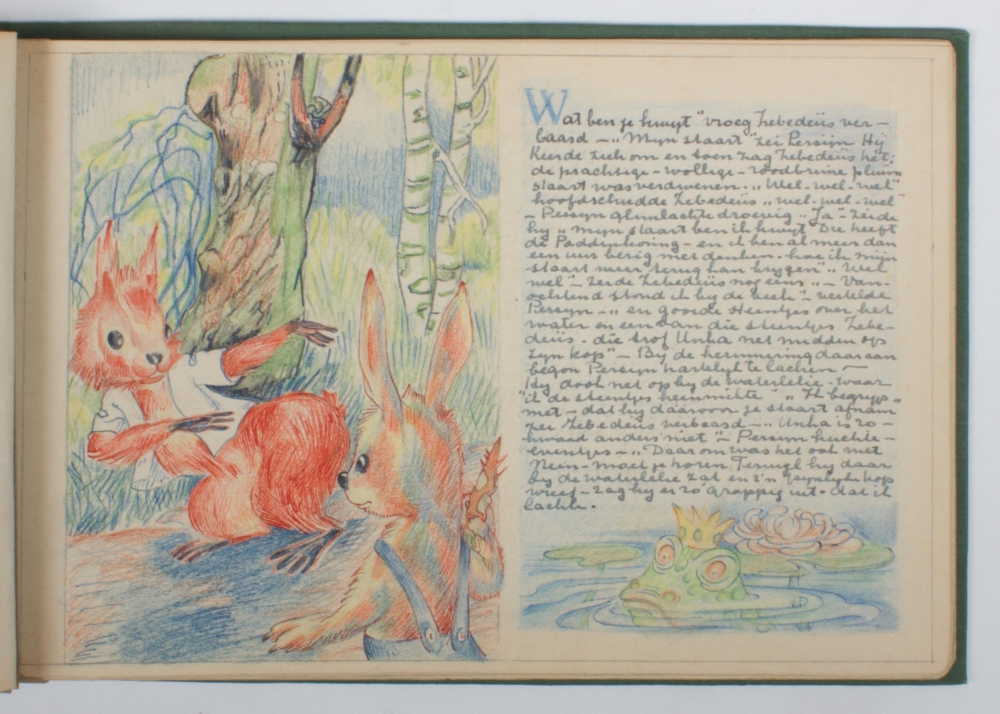 Wat ben je kwyt" vroeg Zebedeüs ver-
baasd -„ Myn staart" zei Persijn Hij
keerde zich om en toen zag Zebedeüs het;
de prachtige - wollige - roodbruine pluim
staart was verdwenen. „ Wel - wel - wel"
hoofdschudde Zebedeüs „ wel - wel - wel"
- Persyn glimlachte droevig „ Ja - zeide
hy „ myn staart ben ik kwyt" Die heeft
de Paddenkoning - en ik ben al meer dan
een uur bezig met denken. hoe ik mijn
staart weer terug kan krygen" „ Wel
wel" - zeide Zebedeüs nog eens „ - Van-
ochtend stond ik by de beek" - vertelde
Persyn - „ en gooide steentjes over het
water en een van die steentjes Zebe-
deüs - die trof Unka net midden op
zyn kop" - By de herinnering daaraan
begon Persyn hartelyk te lachen -
Hy dook net op by de waterlelie - waar
ik de steentjes heenmikte" „ Ik begryp
niet - dat hy daarvoor je staart afnam
zei Zebedeüs verbaasd - „ Unka is zo-
kwaad anders niet" - Persyn kuchte -
eventjes - „ Daarom was het ook niet
Neen - moet je horen Terwyl hy daar
by de waterlelie zat en z'n pynlyke kop
wreef - zag hy er zo grappig uit - dat ik
lachte.